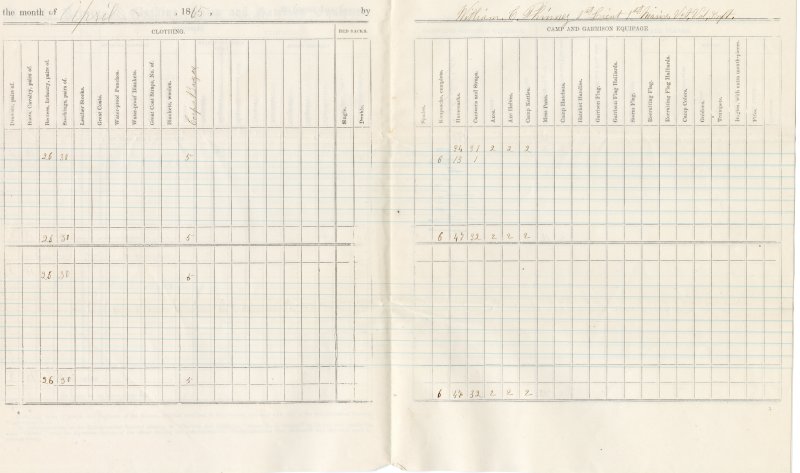 the month of April, 1865. by William C. Phinney 1st Lieut 1st Maine
CLOTHING.
BED SACKS.
CAMP AND GARRISON EQUIPAGE
Drawers, pairs of.
Boots, Cavalry, pairs of.
Bootees, Infantry, pairs of.
Stockings, pairs of.
Leather Stocks.
Great Coats.
Water-proof Ponchos.
Water-proof Blankets.
Great Coat Straps, No. of.
Blankets, woolen.
Single.
Double.
Spades.
Knapsacks, complete.
Haversacks.
Canteens and Straps.
Axes.
Axe Helves.
Camp Kettles.
Mess Pans.
Camp Hatchets.
Hatchet Handles.
Garrison Flag.
Garrison Flag Halliards.
Storm Flag.
Recruiting Flag.
Recruiting Flag Halliards.
Camp Colors.
Guidons.
Trumpets.
Bugles, with extra mouth-pieces.
Fifes.
34 31 2 2 2
26 30 5 6 13 1
26 30 5 6 47 32 2 2 2
26 30 5
26 30 5
6 47 32 2 2 2